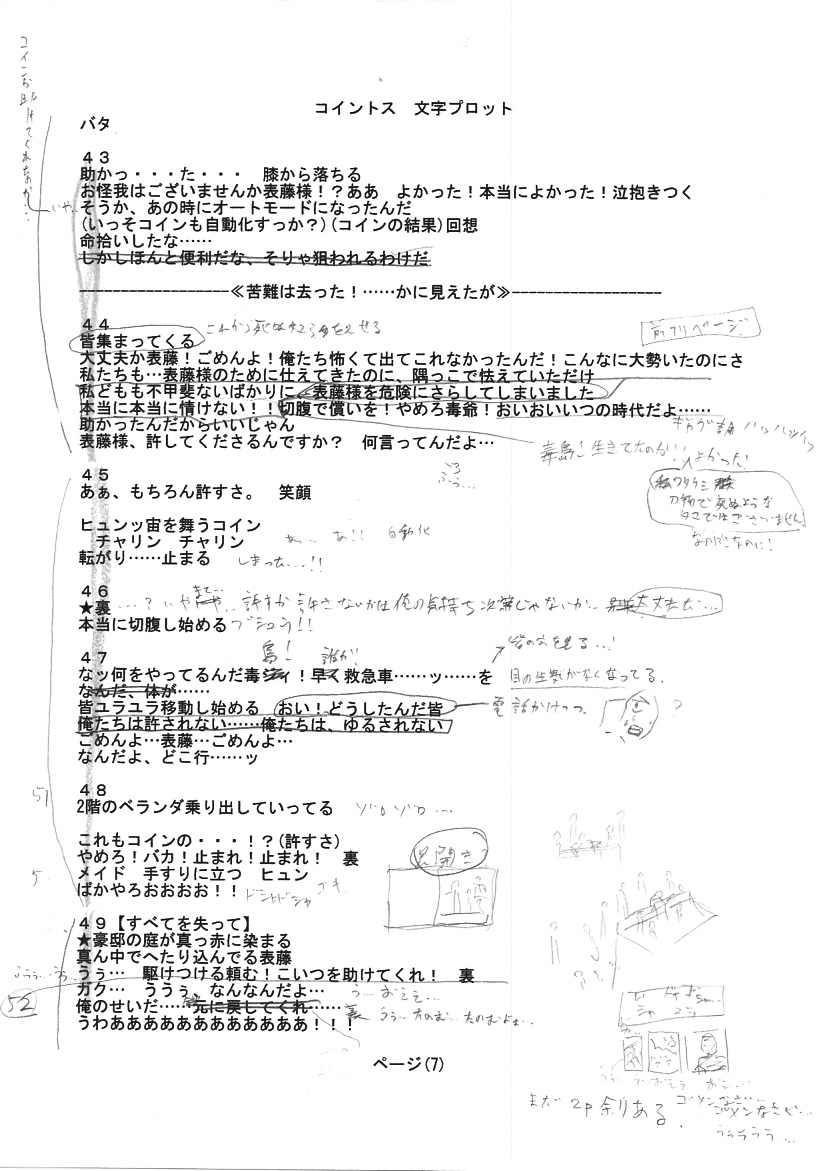 コイントス　文字プロット
バタ
４３
助かっ・・・た・・・　膝から落ちる
お怪我はございませんか表藤様！？ああ　よかった！本当によかった！泣抱きつく
いや
そうか、あの時にオートモードになったんだ
(いっそコインも自動化すっか？)(コインの結果)回想
命拾いしたな……
しかしほんと便利だな、そりゃ狙われるわけだ
------------------≪苦難は去った！……かに見えたが≫------------------
４４
皆集まってくる
前フリページ
大丈夫か表藤！ごめんよ！俺たち怖くて出てこれなかったんだ！こんなに大勢いたのにさ
私たちも…表藤様のために仕えてきたのに、隅っこで怯えていただけ
私どもも不甲斐ないばかりに、表藤様を危険にさらしてしまいました
本当に本当に情けない！！切腹で償いを！やめろ毒爺！おいおいいつの時代だよ……
助かったんだからいいじゃん
表藤様、許してくださるんですか？　何言ってんだよ…
毒島！生きてたのか！！
よかった！
４５
あぁ、もちろん許すさ。　笑顔
刃物で死ぬような
なのに！なのに！
ヒュンッ宙を舞うコイン
チャリン　チャリン
あ!!　自動化
転がり……止まる
しまった…!!
４６
★裏
…？いや
許すか許さないかは俺の気持ち次第じゃないか
大丈夫だ…
本当に切腹し始める
ブシュう!!
４７
島！　誰か！
皆の方を見る…！
なッ何をやってるんだ毒ジィ！早く救急車……ッ……を
目の生気がなくなってる.
なんだ、体が……
皆ユラユラ移動し始める　おい！どうしたんだ皆
電話かけつつ
？
俺たちは許されない……俺たちは、ゆるされない
ごめんよ…表藤…ごめんよ…
なんだよ、どこ行……ッ
４８
51
2階のベランダ乗り出していってる
ゾロゾロ…
これもコインの・・・！？(許すさ)
見開き
やめろ！バカ！止まれ！止まれ！　裏
5
メイド　手すりに立つ　ヒュン
ばかやろおおおお！！
ドシャドシャ
４９【すべてを失って】
★豪邸の庭が真っ赤に染まる
真ん中でへたり込んでる表藤
うぅ…　駆けつける頼む！こいつを助けてくれ！　裏
ガク…　ううぅ、なんなんだよ…
52
俺のせいだ……元に戻してくれ……
裏
うわああああああああああああ！！！
ページ(7)
まだ 2p 余りある.
ゴメンなさい…
ゴメンなさい…
うううう…